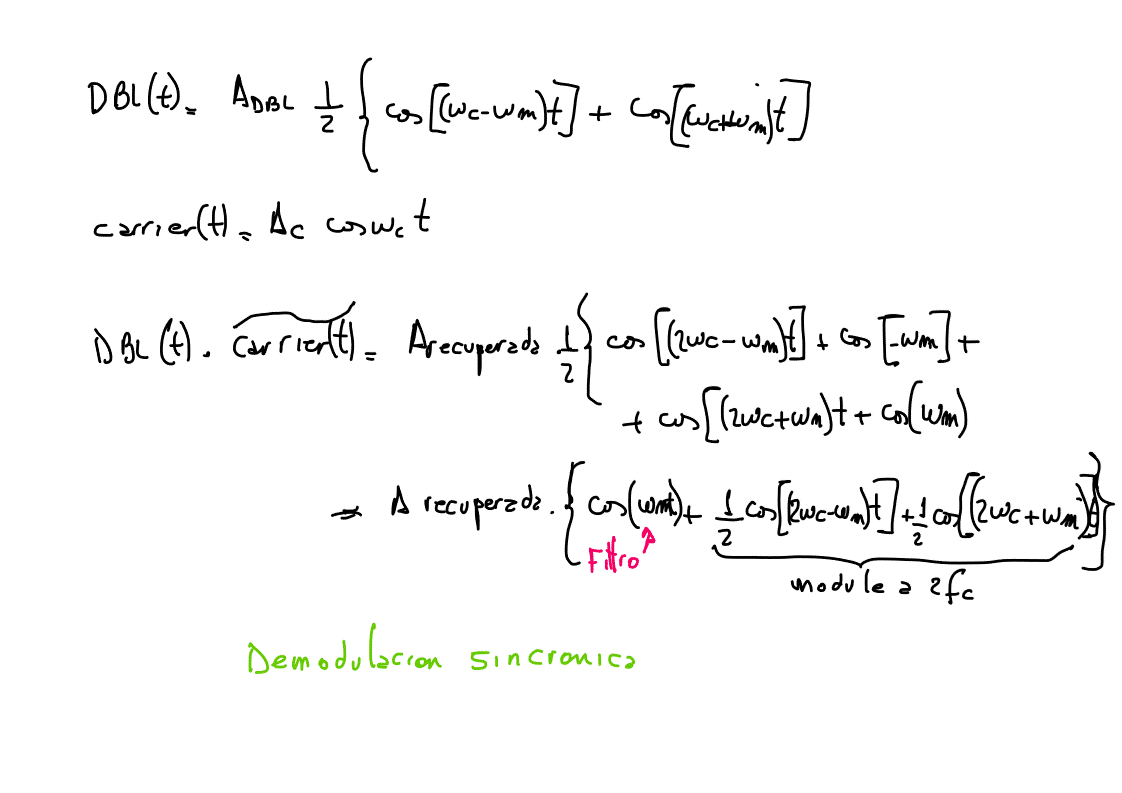 DBL(t) = A_DBL 1/2 { cos[(ωc-ωm)t] + cos[(ωc+ωm)t]
carrier(t) = Ac cosωc t
DBL(t) . carrier(t) = A recuperada . 1/2 { cos[(2ωc-ωm)t] + cos[-ωm] +
+ cos[(2ωc+ωm)t + cos(ωm)
= A recuperada . { cos(ωmt) + 1/2 cos[(2ωc-ωm)t] + 1/2 cos[(2ωc+ωm)t] }
Filtro
module a 2fc
Demodulacion sincronica